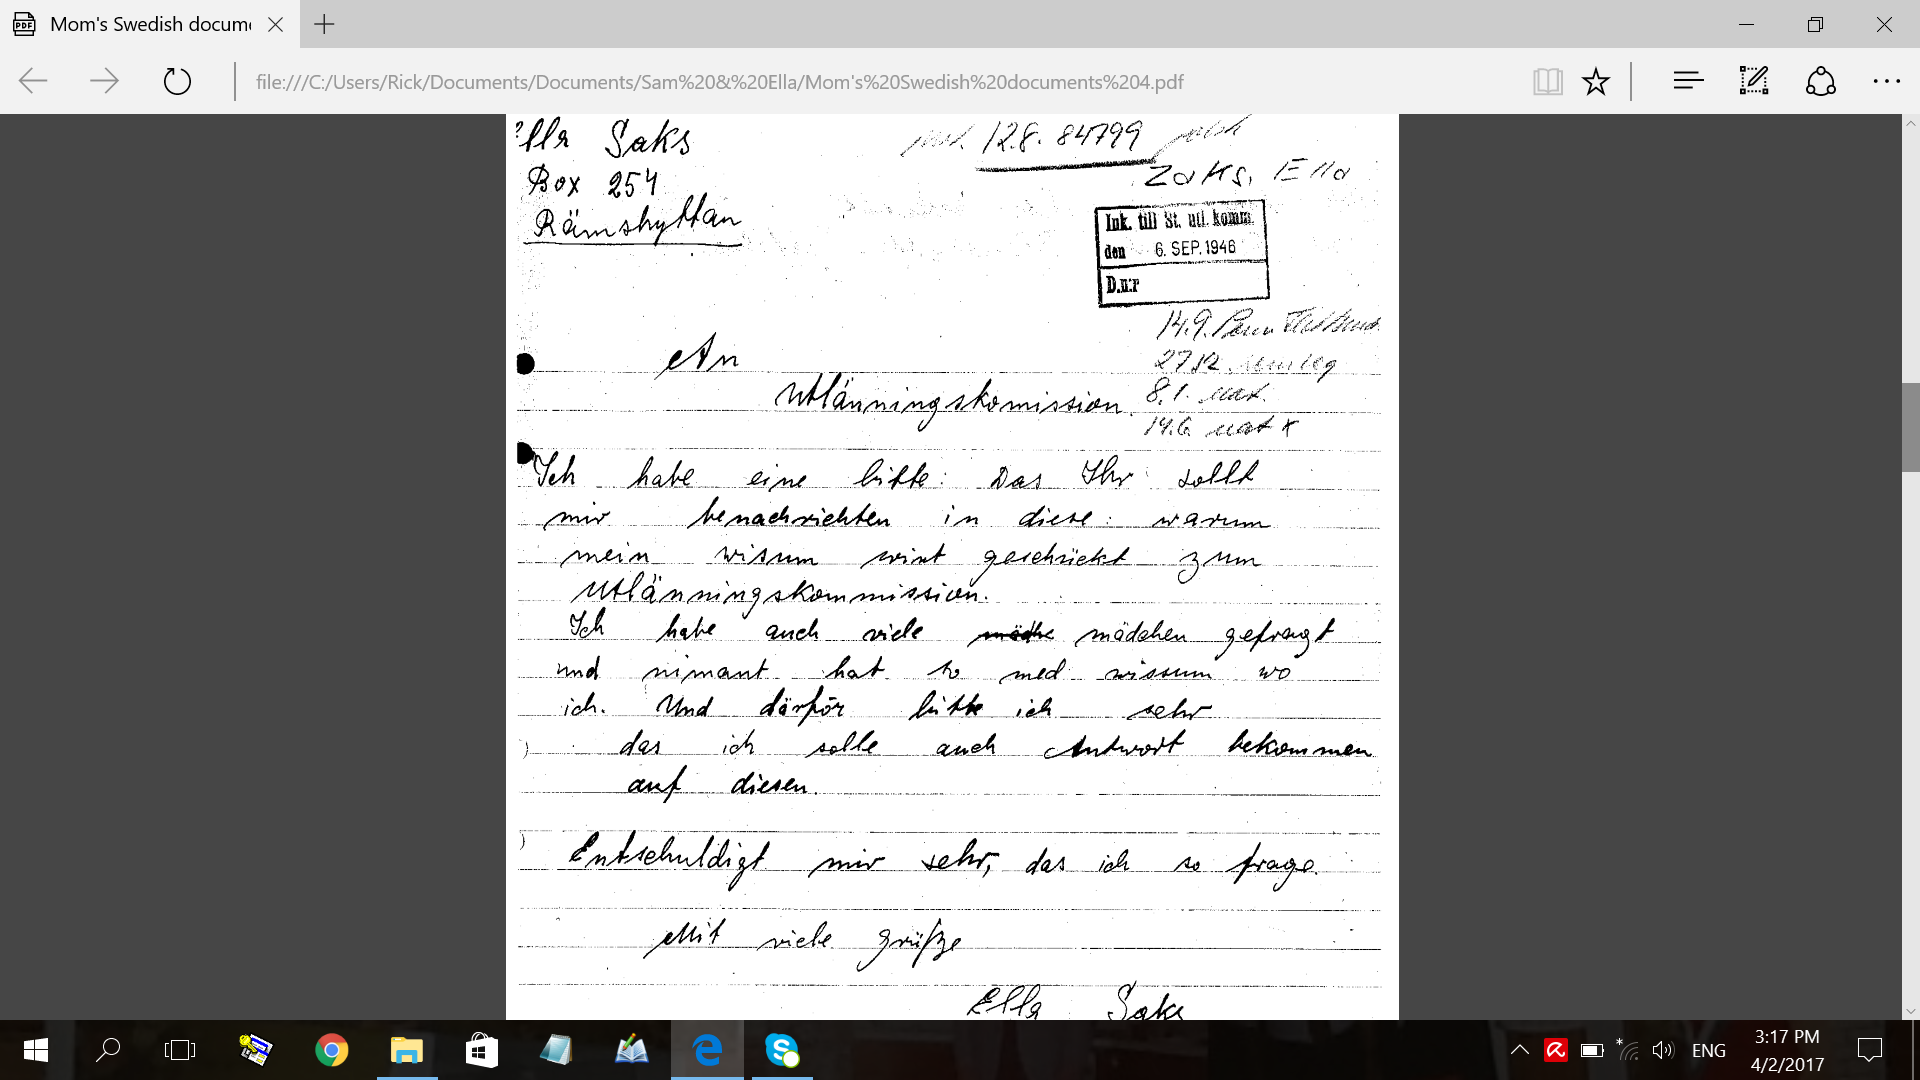 Mom's Swedish docume
file:///C:/Users/Rick/Documents/Documents/Sam%20&%20Ella/Mom's%20Swedish%20documents%204.pdf
Ella Saks
12.8. 84799
Box 254
Zaks, Ella
Rämshyttan
Ink. till St. utl. komm.
den 6. SEP. 1946
D.n:r
14.9.
An
27.12.
Utlänningskomission.
8.1. mat.
14.6. mat x
Ich habe eine bitte: Das Ihr sollt
mir benachrichten in diese: warum
mein wisum wirt geschückt zum
Utlänningskommission.
Ich habe auch viele mädchen gefragt
und nimant hat so med wissum wo
ich. Und därför bitte ich sehr
das ich solle auch Antwort bekommen
auf diesen.
Entschuldigt mir sehr, das ich so frage.
Mit viele grüße
Ella Saks
ENG
3:17 PM
4/2/2017